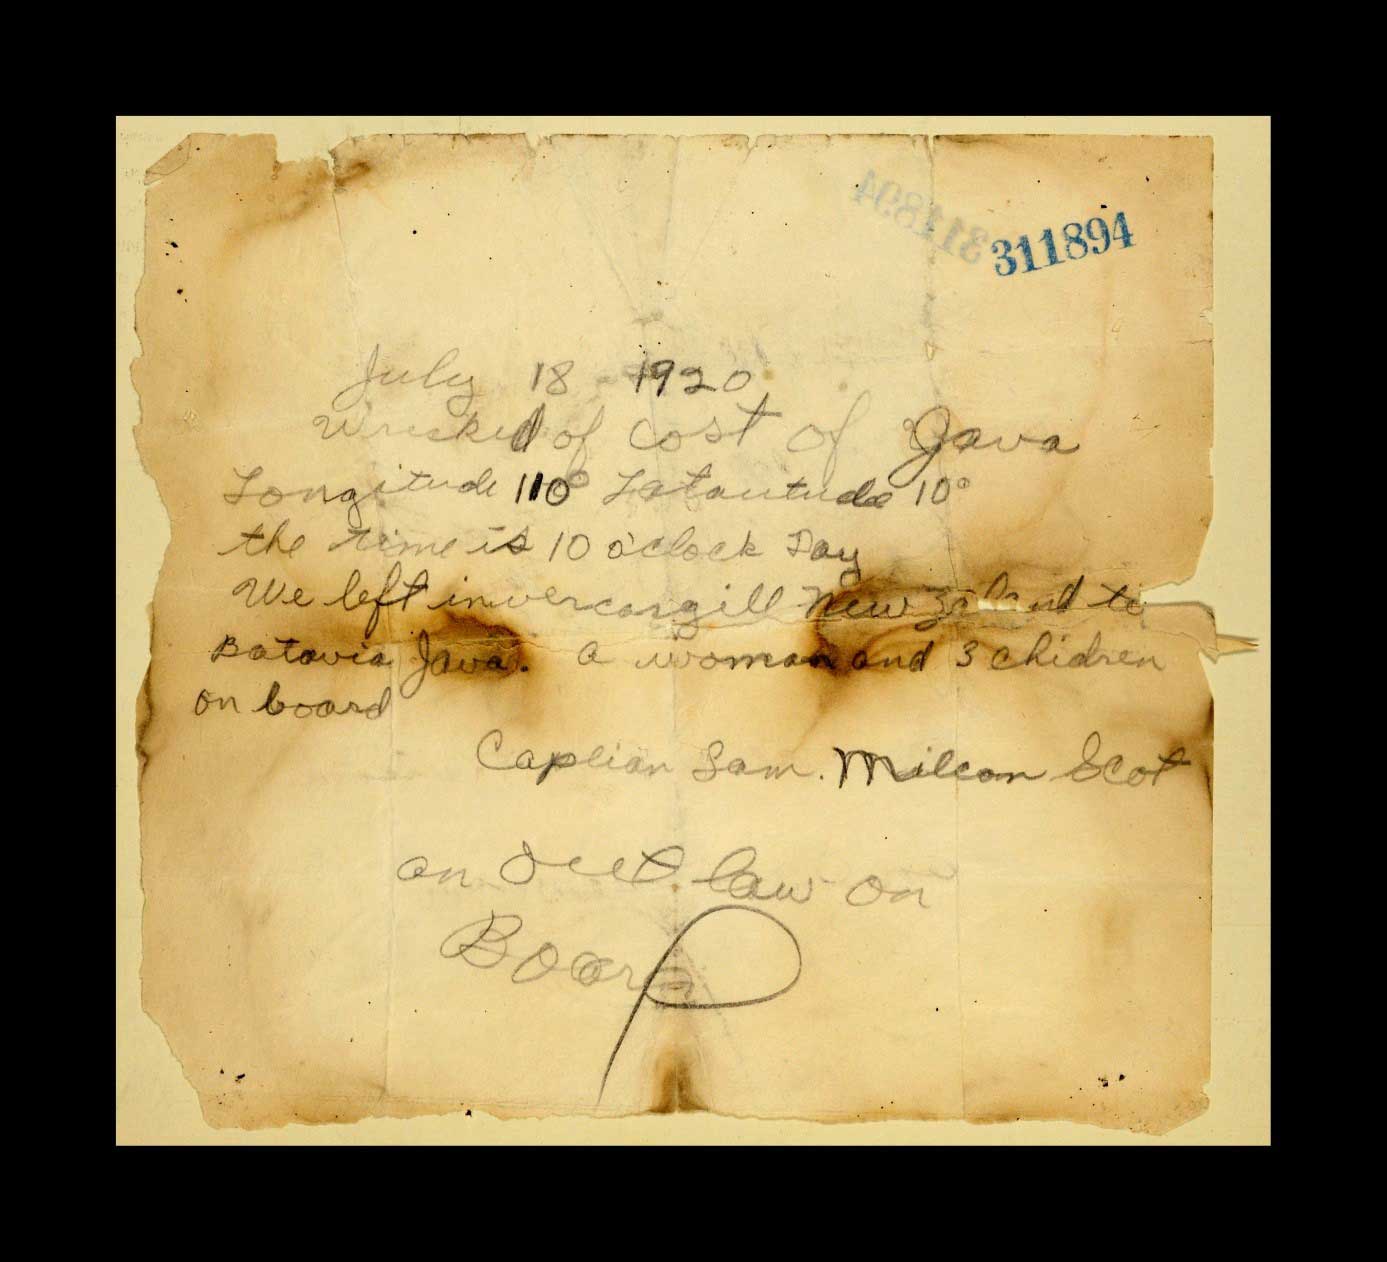 311894
July 18 1920
Wrecked of cost of Java
Longitude 110° Latautude 10°
the time is 10 o'clock Day
We left invercargill New Zeland to
Batavia Java. a woman and 3 chidren
on board
Captian Sam. Milcom Scot
an Out law on
Board